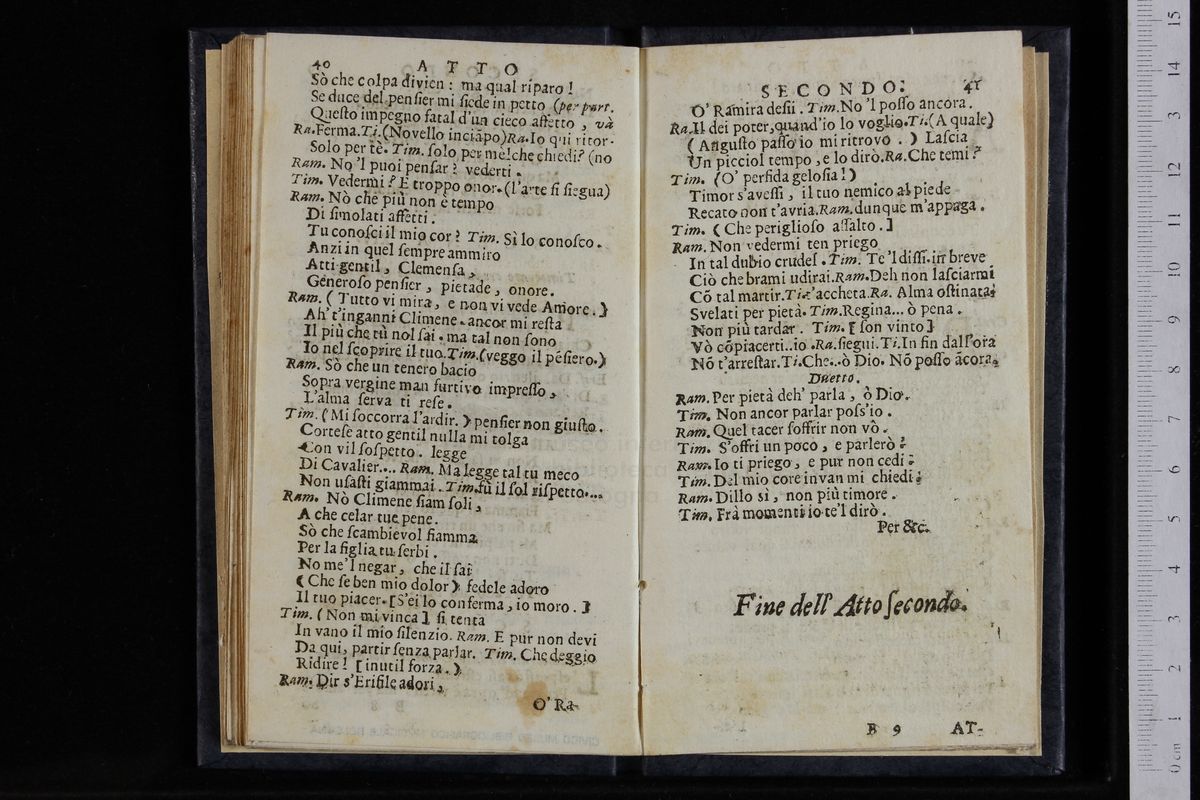 40 ATTO
Sò che colpa divien : ma qual riparo !
Se duce del pensier mi siede in petto (per part.
Questo impegno fatal d'un cieco affetto , và
Ra.Ferma.Ti.(Novello inciãpo)Ra.Io qui ritor-
Solo per tè. Tim. solo per me!che chiedi? (no
Ram. No 'l puoi pensar ? vederti .
Tim. Vedermi ? E troppo onor. (l'arte si siegua)
Ram. Nò che più non è tempo
Di simolati affetti .
Tu conosci il mio cor ? Tim. Sì lo conosco .
Anzi in quel sempre ammiro
Atti gentil , Clemensa ,
Generoso pensier , pietade , onore.
Ram. ( Tutto vi mira , e non vi vede Amore . )
Ah't'inganni Climene . ancor mi resta
Il più che tù nol sai . ma tal non sono
Io nel scoprire il tuo. Tim.(veggo il pẽsiero.)
Ram. Sò che un tenero bacio
Sopra vergine man furtivo impresso ,
L'alma serva ti rese .
Tim. ( Mi soccorra l'ardir. ) pensier non giusto .
Cortese atto gentil nulla mi tolga
Con vil sospetto . legge
Di Cavalier.... Ram. Ma legge tal tu meco
Non usasti giammai . Tim.fù il sol rispetto....
Ram. Nò Climene siam soli ,
A che celar tue pene .
Sò che scambievol fiamma
Per la figlia tu serbi .
No me 'l negar , che il sai
( Che se ben mio dolor ) fedele adoro
Il tuo piacer. [S'ei lo conferma , io moro . ]
Tim. ( Non mi vinca ] si tenta
In vano il mio silenzio. Ram. E pur non devi
Da qui, partir senza parlar. Tim. Che deggio
Ridire ! [ inutil forza . )
Ram. Dir s'Erifile adori ,
O' Ra-
SECONDO. 41
O' Ramira desii . Tim.No 'l posso ancora .
Ra.Il dei poter,quand'io lo voglio.Ti.(A quale)
( Angusto passo io mi ritrovo . ) Lascia
Un picciol tempo , e lo dirò.Ra.Che temi ?
Tim. (O' perfida gelosia ! )
Timor s'avessi , il tuo nemico al piede
Recato non t'avria.Ram.dunque m'appaga .
Tim. ( Che periglioso assalto . ]
Ram. Non vedermi ten priego
In tal dubio crudel . Tim. Te 'l dissi.in breve
Ciò che brami udirai.Ram.Deh non lasciarmi
Cõ tal martir.Ti.t'accheta.Ra. Alma ostinata.
Svelati per pietà. Tim.Regina... ò pena .
Non più tardar . Tim. [ son vinto ]
Vò cõpiacerti..io .Ra.siegui.Ti.In fin dall'ora
Nõ t'arrestar.Ti.Che..ò Dio. Nõ posso ãcora.
Duetto.
Ram. Per pietà deh' parla , ò Dio.
Tim. Non ancor parlar poss'io .
Ram. Quel tacer soffrir non vò .
Tim. S'offri un poco , e parlerò .
Ram. Io ti priego , e pur non cedi .
Tim. Del mio core invan mi chiedi .
Ram. Dillo sì , non più timore .
Tim. Frà momenti io te'l dirò .
Per &c.
Fine dell' Atto secondo.
B 9 AT-